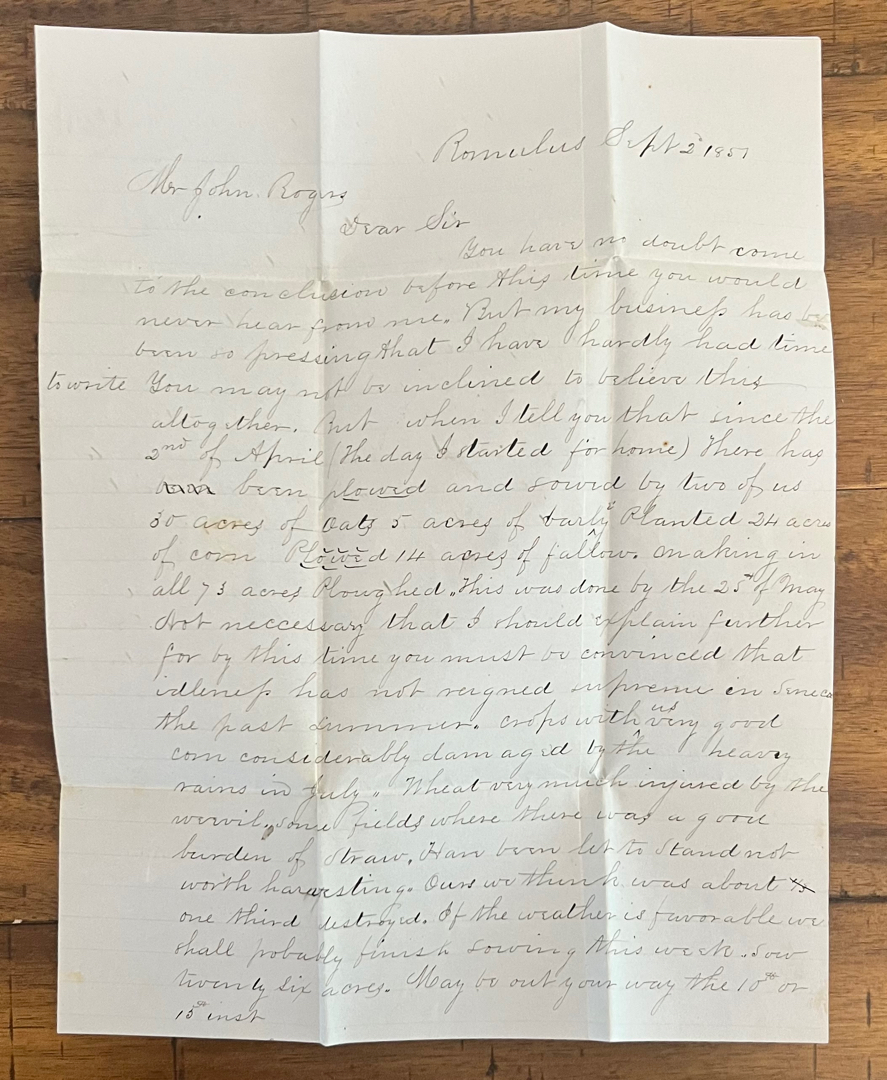 Romulus Sept 2 1857
Mr John Rogers
Dear Sir
You have no doubt come
to the conclusion before this time you would
never hear from me. But my business has be
been so pressing that I have hardly had time
to write You may not be inclined to believe this
altogether. But when I tell you that since the
2nd of April (The day I started for home) There has
been plowed and sowed by two of us
30 acres of Oats 5 acres of barly Planted 24 acres
of corn Plowed 14 acres of fallow. making in
all 73 acres Ploughed. This was done by the 25th of May
Not neccessary that I should explain further
for by this time you must be convinced that
idleness has not reigned supreme in Seneca
the past summer. crops with us very good
corn considerably damaged by the heavy
rains in July. Wheat very much injured by the
weevil. some Fields where there was a good
burden of Straw. Have been let to Stand not
worth harvesting. Ours we think was about 1/3
one third destroyed. If the weather is favorable we
shall probably finish sowing this week. Sow
twenty six acres. May be out your way the 10th or
15th inst